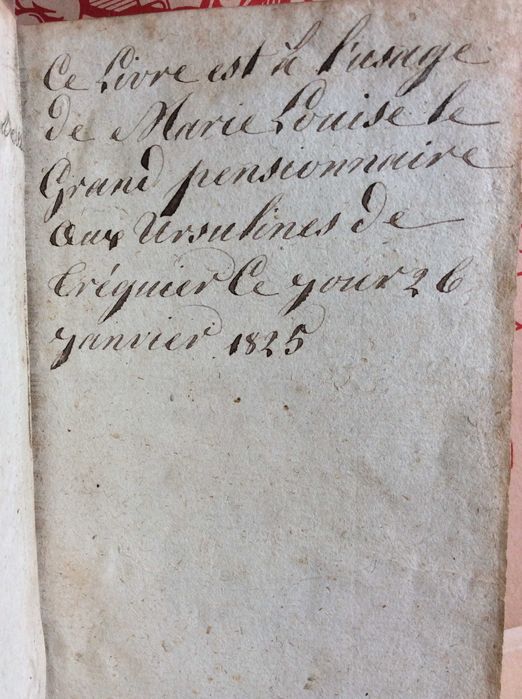 Ce Livre est à l'usage
de Marie Louise le
Grand pensionnaire
aux Ursulines de
tréguier Ce jour 26
janvier 1825